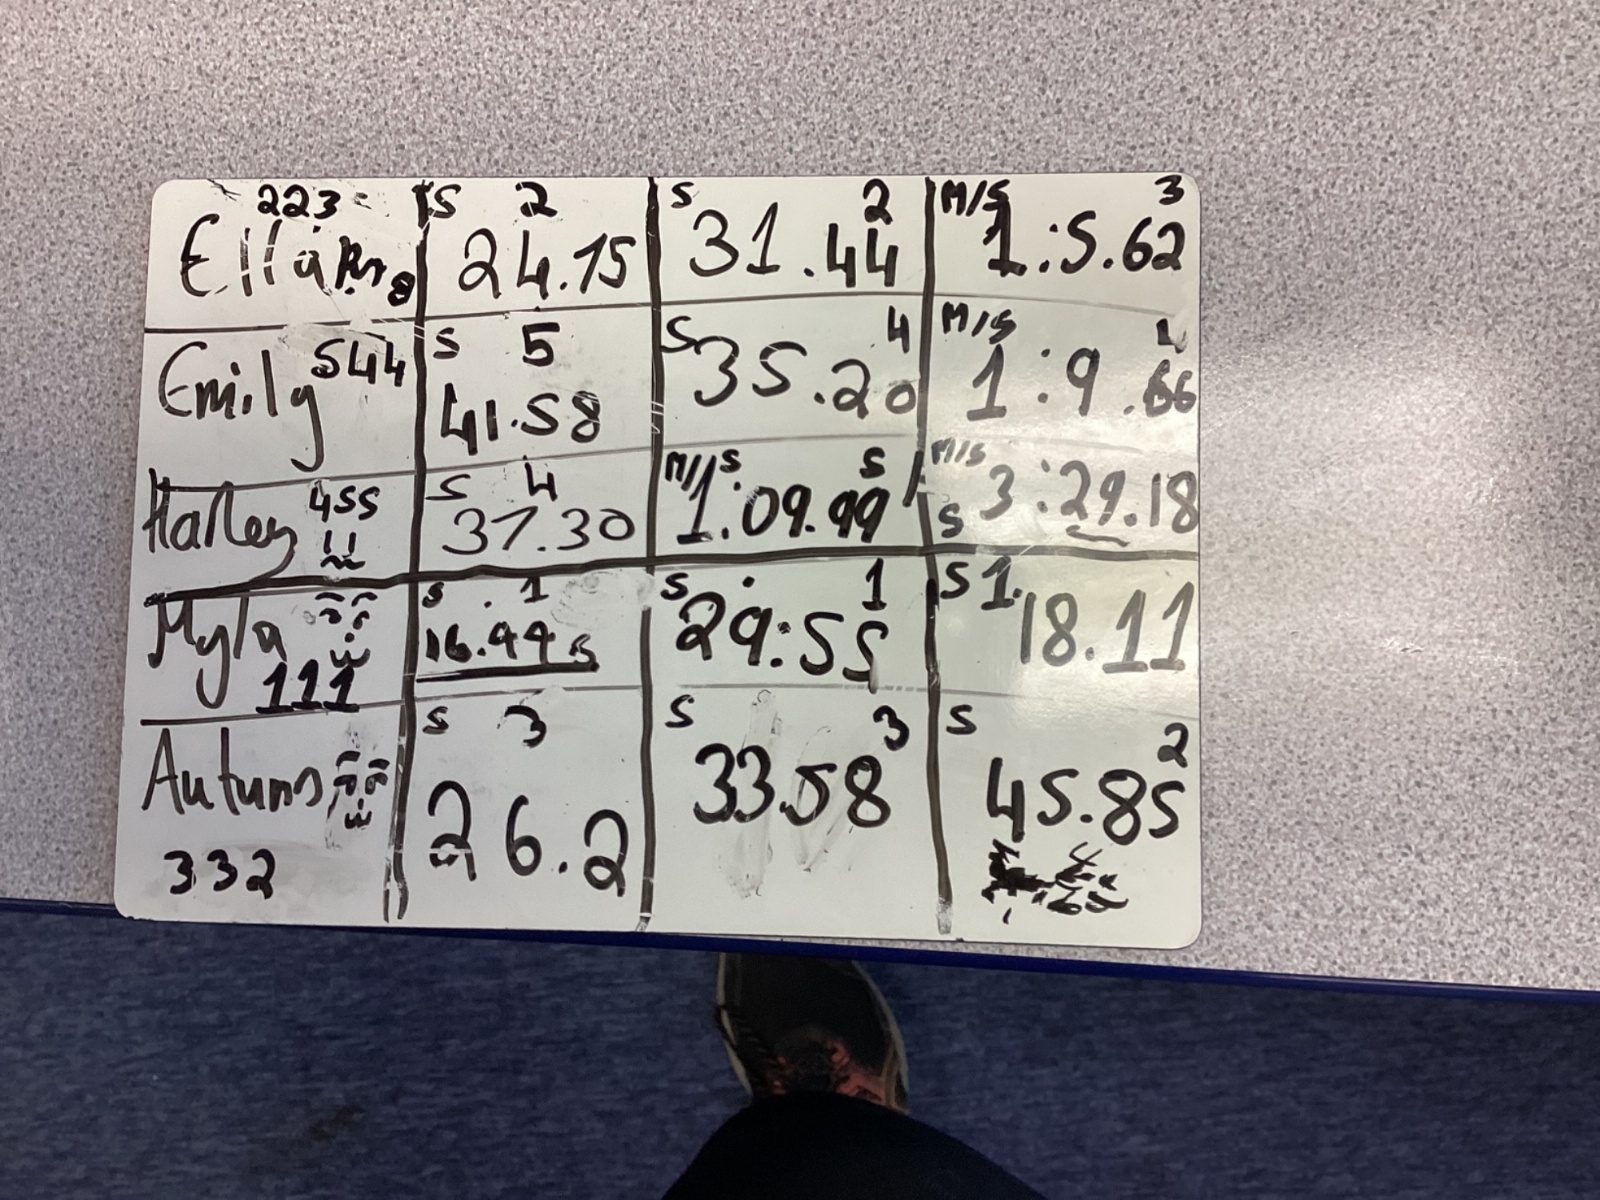 223
Ella
S 2
24.15
S 2
31.44
M/S 3
1:5.62
Emily 544
S 5
41.58
S 4
35.20
M/S
1:9.66
Harley 455
S 4
37.30
M/S S
1:09.99
M/S
S 3:29.18
Myla
111
S 1
16.99s
S 1
29:55
S 1
18.11
Autumn
332
S 3
26.2
S 3
33.58
S 2
45.85